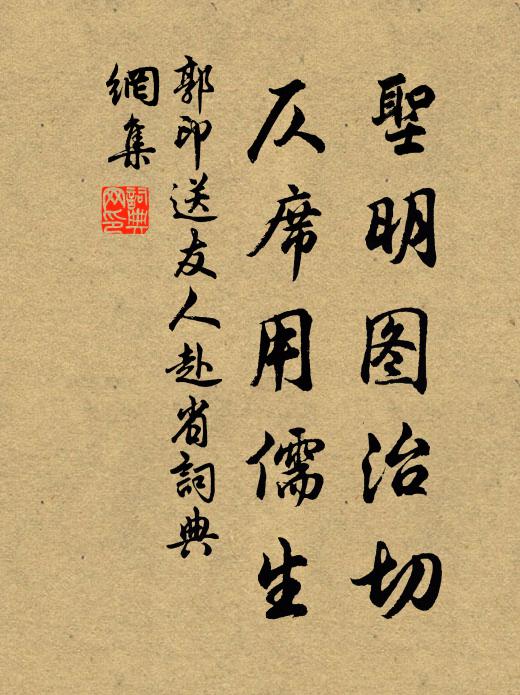 聖明图治切
仄席用儒生
郭印送友人赴省詞典
網集
詞典
网印